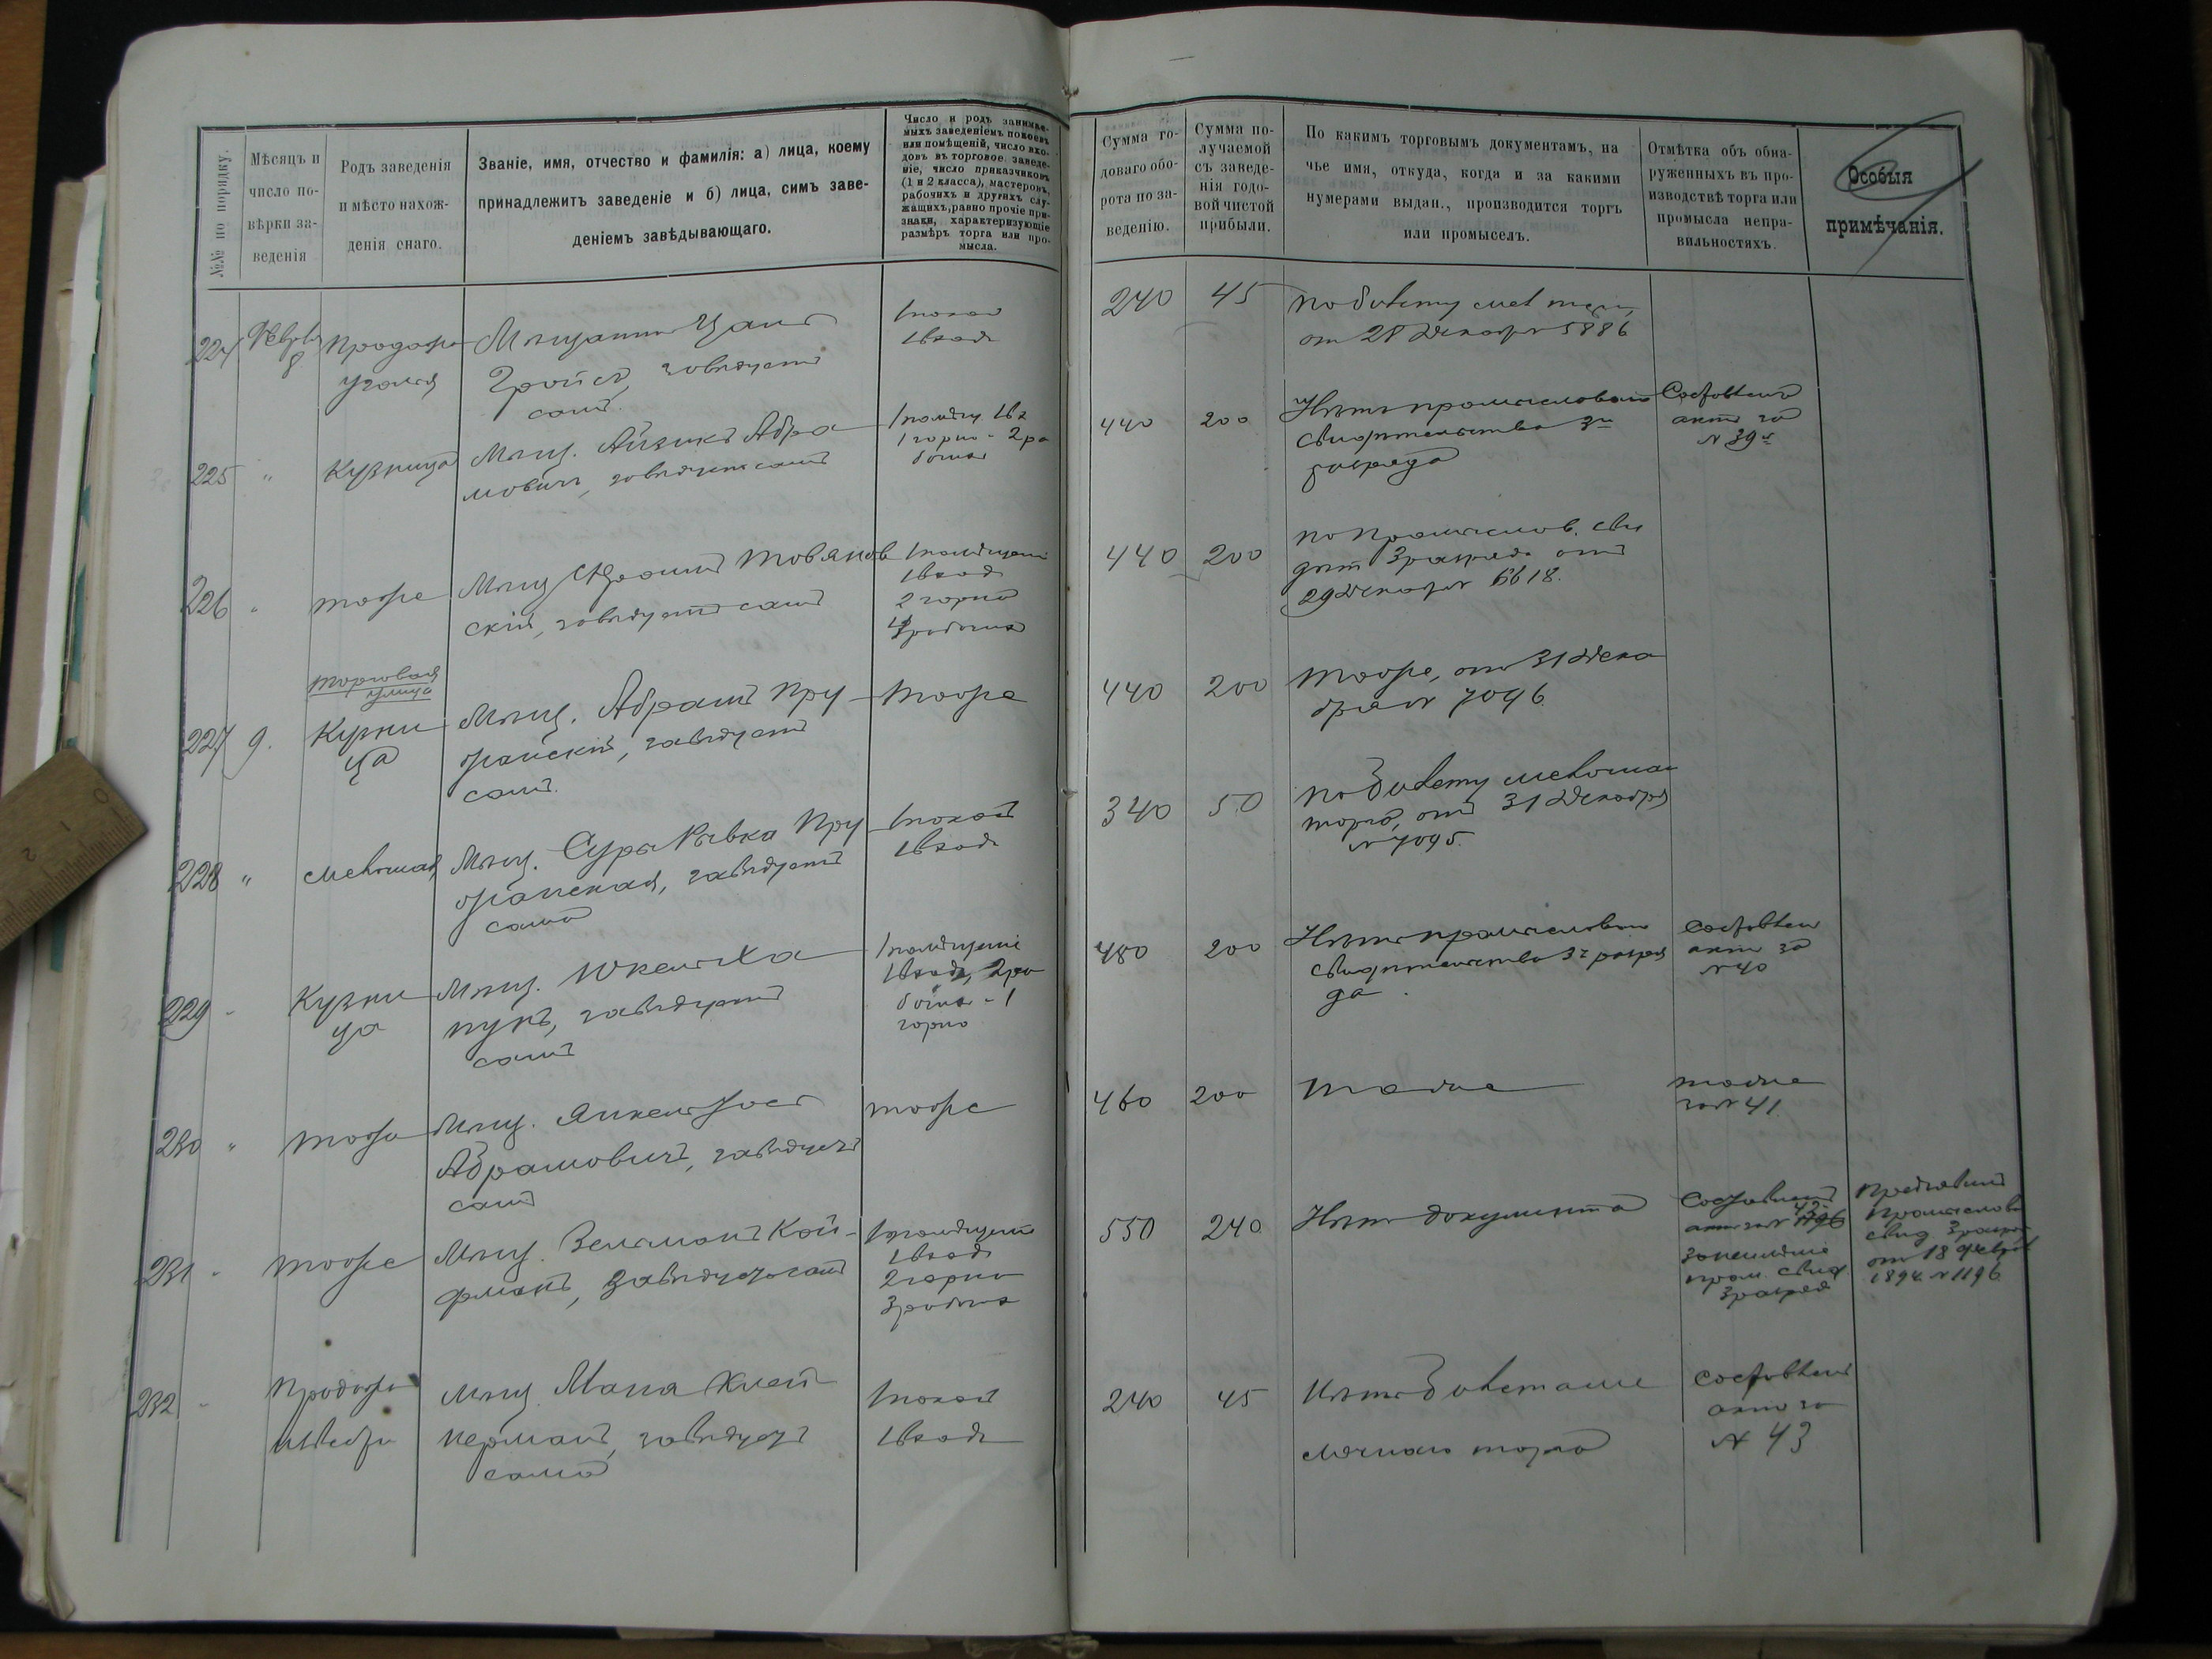 №№ по порядку.
Мѣсяцъ и
число по-
вѣрки за-
веденія
Родъ заведенія
и мѣсто нахож-
денія онаго.
Званіе, имя, отчество и фамилія: а) лица, коему
принадлежитъ заведеніе и б) лица, симъ заве-
деніемъ завѣдывающаго.
Число и родъ занимае-
мыхъ заведеніемъ покоевъ
или помѣщеній, число вхо-
довъ въ торговое заведе-
ніе, число приказчиковъ
(1 и 2 класса), мастеровъ,
рабочихъ и другихъ слу-
жащихъ, равно прочіе при-
знаки, характеризующіе
размѣръ торга или про-
мысла.
Сумма го-
доваго обо-
рота по за-
веденію.
Сумма по-
лучаемой
съ заведе-
нія годо-
вой чистой
прибыли.
По какимъ торговымъ документамъ, на
чье имя, откуда, когда и за какими
нумерами выдан., производится торгъ
или промыселъ.
Отмѣтка объ обна-
руженныхъ въ про-
изводствѣ торга или
промысла непра-
вильностяхъ.
Особыя
примѣчанія.
224
8
Продажа
угля
Мѣщанинъ
завѣдуетъ
самъ.
1 покой
1 входъ
240
45
по билету мел торг,
от 28 Декабр № 5886
225
"
Кузница
Мѣщ. Айзикъ Абра
мовичъ, завѣдуетъ самъ
1 помѣщ. 1 вх
1 горно - 2 ра
бочих
440
200
Нѣтъ промысловаго
свидѣтельства 3го
разряда
Составленъ
актъ за
№ 39
226
"
тоже
Мѣщ Товянов
скій, завѣдуетъ самъ
1 помѣщен
1 входъ
2 горна
рабочих
440
200
по Промыслов. сви
дѣт 3 разряда отъ
29 Декабря № 6618.
Торговая
улица
227
9.
Кузни
ца
Мѣщ. Абрамъ Пру
жанскій, завѣдуетъ
самъ.
тоже
440
200
тоже, отъ 31 Дека
бря № 7096
228
"
мелочная
Мѣщ. Сура Ривка Пру
жанская, завѣдуетъ
сама
1 покой
1 входъ
340
50
по билету мелочнаго
торга, отъ 31 Декабря
№ 7095.
229
"
Кузни
ца
Мѣщ.
завѣдуетъ
самъ
1 помѣщеніе
1 входъ, 2 ра
бочих - 1
горно
480
200
Нѣтъ промысловаго
свидѣтельства 3го разря
да.
Составлен
актъ за
№ 40
230
"
тоже
Мѣщ. Янкель
Абрамовичъ, завѣдуетъ
самъ
тоже
460
200
тоже
тоже
за № 41
231
"
тоже
Мѣщ. Зельманъ Кой-
фманъ, завѣдуетъ самъ
1 помѣщеніе
1 входъ
2 горна
3 рабочих
550
240
Нѣтъ документа
Составленъ
актъ за № 42
за неимѣніе
пром. свид.
3 разряда
Предъявилъ
Промыслово
свид 3 разр
от 18 Февр
1894 № 1196
232
"
Продажа
Мѣщ.
керманъ, завѣдуетъ
сама
1 покой
1 входъ
240
45
Нѣтъ билета ме
лочнаго торга
Составленъ
актъ за
№ 43